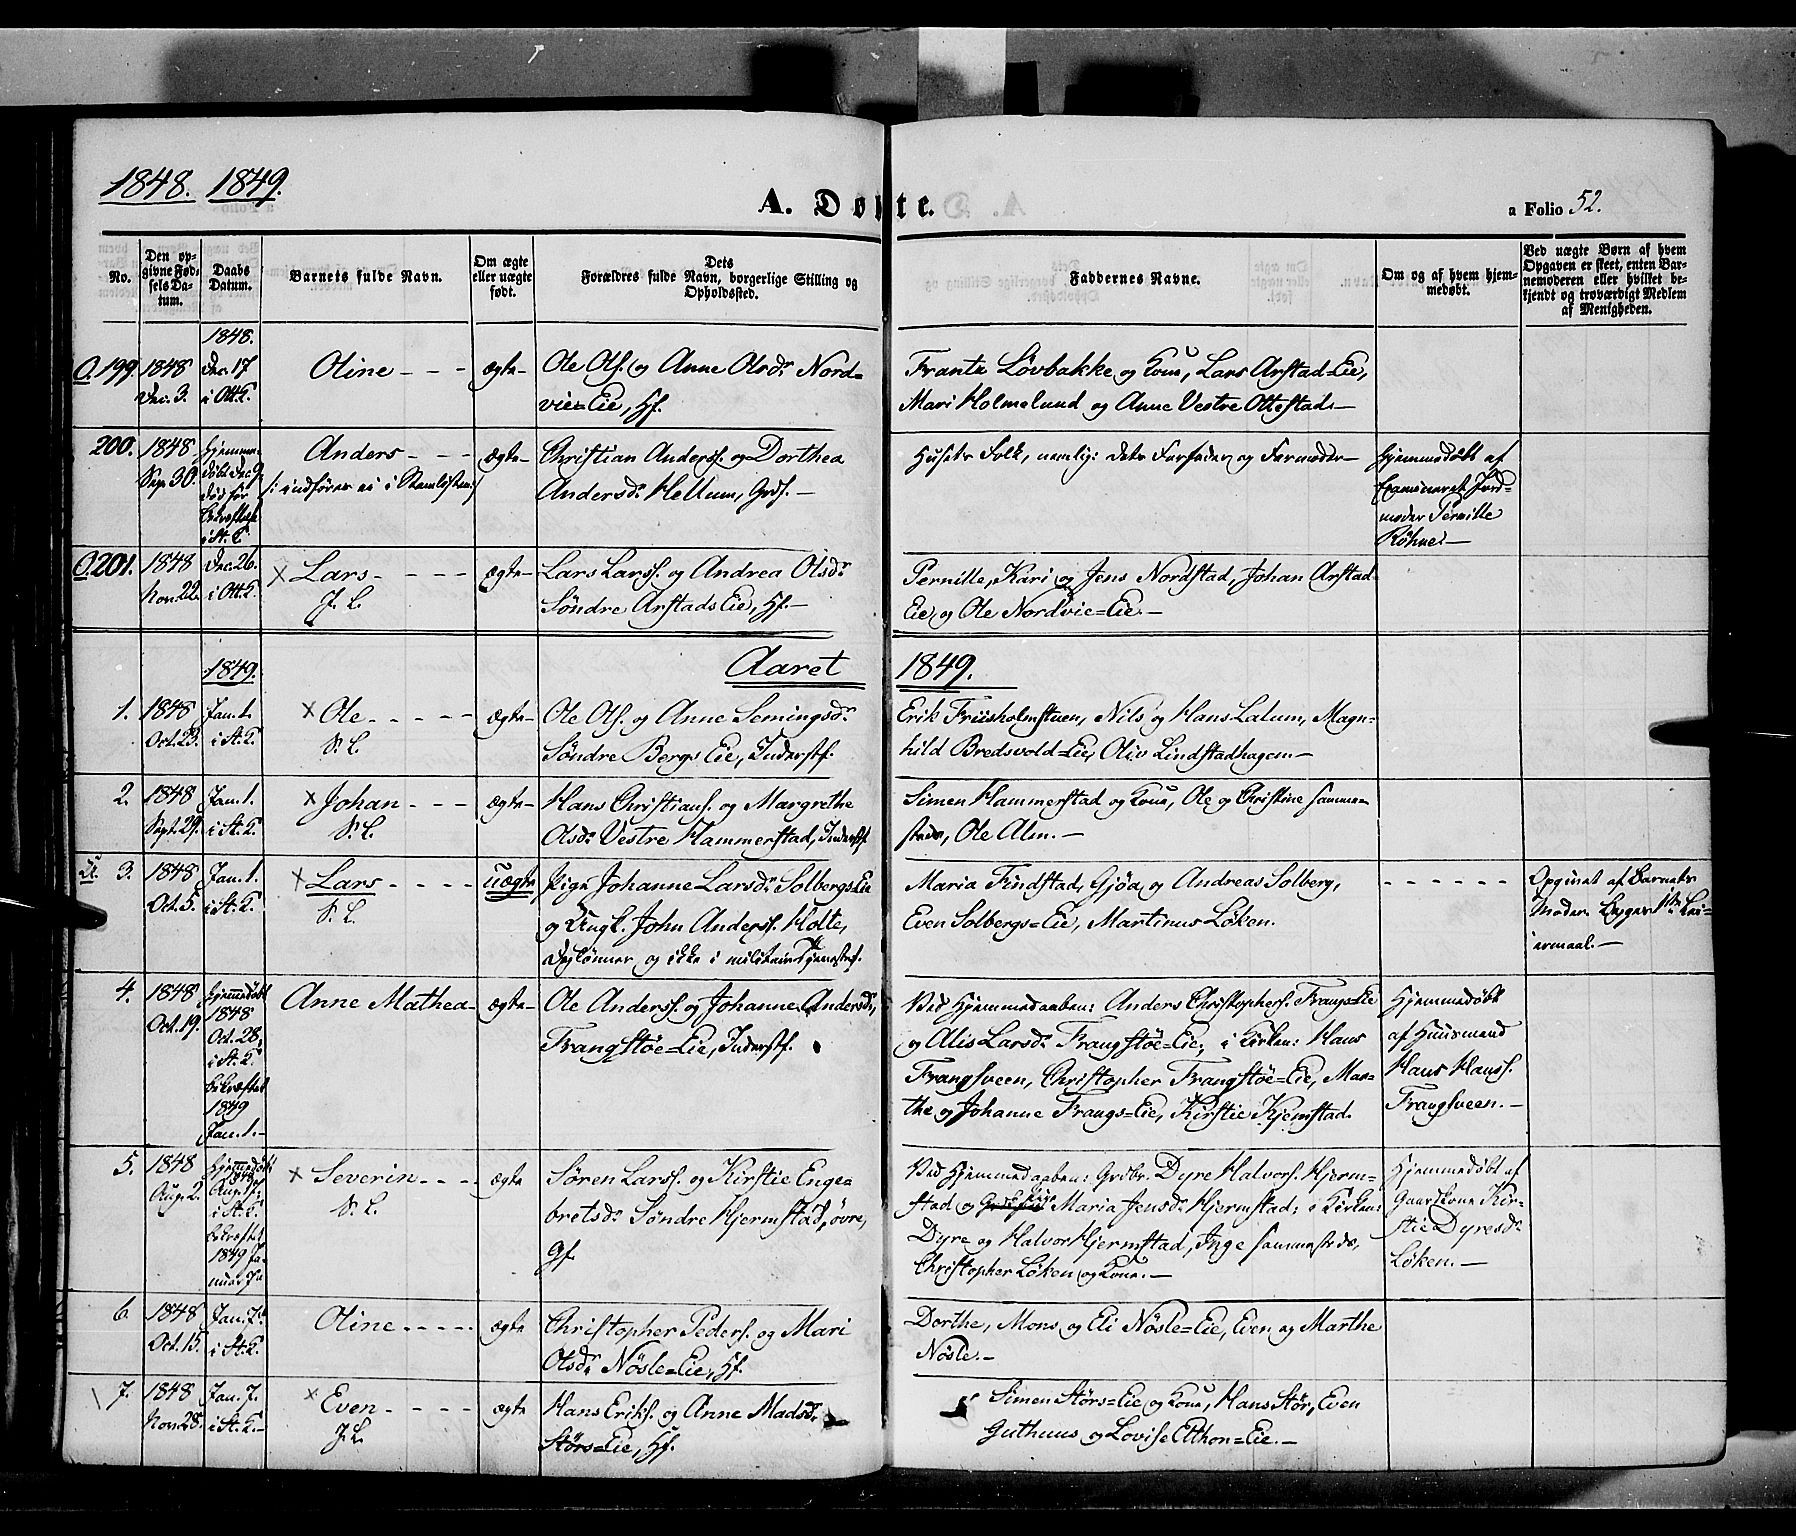 1848. 1849.
A. Døbte.
a Folio 52.
No.
Den op-
givne Fød-
sels Da-
tum.
Daabs
Datum.
Barnets fulde Navn.
Om ægte
eller uægte
født.
Dets
Forældres fulde Navn, borgerlige Stilling og
Opholdssted.
Faddernes Navne.
Om og af hvem hjem-
medøbt.
Ved uægte Børn af hvem
Opgaven er skeet, enten Bar-
nemoderen eller hvilket be-
kjendt og troværdigt Medlem
af Menigheden.
1848.
O. 199.
1848
Dec. 3.
Dec. 17
i Ott. K.
Oline - - -
ægte-
Ole Ols. og Anne Olsdr Nord-
vie=Eie, Hf.
Frantz Løvbakke og Kone, Lars Arstad=Eie,
Mari Holmelund og Anne Vestre Ottestad-
200.
1848
Sep. 30.
Hjemme-
døbt Dec. 9,
død før
bekræftelse
i St. K.
Anders - - -
/: indføres ei i Stamlisten :/
ægte-
Christian Anderss. og Dorthea
Andersdr Hellum, Grdf. -
Husets Folk, nemlig: dets Farfader og Farmoder-
Hjemmedøbt af
Examineret Jord-
moder Pernille
Röhne. -
O. 201.
1848
Nov. 22.
Dec. 26.
i Ott. K.
x Lars - - - -
J. L.
ægte-
Lars Larss. og Andrea Olsdr
Søndre Arstads Eie, Hf. -
Pernille, Kari og Jens Nordstad, Johan Arstad-
Eie og Ole Nordvie=Eie. -
1849.
Aaret 1849.
1.
1848
Oct. 23.
Jan. 1.
i St. K.
x Ole - - - - -
S. L.
ægte-
Ole Ols. og Anne Semingsdr
Søndre Bergs Eie, Inderstf.
Erik Friisholmstuen, Nils og Hans Lalum, Magn-
hild Bredsvold=Eie, Oliv Lindstadhagen -
2.
1848
Sept. 29.
Jan. 1.
i St. K.
x Johan - - -
S. L.
ægte-
Hans Christians. og Margrethe
Olsdr Vestre Hammerstad, Inderstf.
Simen Hammerstad og Kone, Ole og Christine samme-
steds, Ole Alm. -
U. 3.
1848
Oct. 5.
Jan. 1.
i St. K.
x Lars - - - -
S. L.
uægte
Pige Johanne Larsdr Solbergs Eie
og Ungk. John Anderss. Holte,
Daglønner og ikke i militair Tjeneste.
Maria Findstad, Gjøa og Andreas Solberg,
Even Solbergs=Eie, Martinus Løken.
- - - - - -
Opgivet af Barnets
Moder. Begges 1ste Lei-
ermaal. -
4.
1848
Oct. 19.
Hjemmedøbt
1848
Oct. 28,
i St. K.
bekræftet
1849
Jan. 1. -
Anne Mathea-
ægte-
Ole Anderss. og Johanne Andersdr,
Frangstöe=Eie, Inderstf.
Ved Hjemmedaaben: Anders Christophers. Frangs=Eie
og Alis Larsdr Frangstöe=Eie; i Kirken: Hans
Frangsveen, Christopher Frangstöe=Eie, Mar-
the og Johanne Frangs=Eie, Kirstie Kjemstad.
Hjemmedøbt
af Huusmand
Hans Hanss.
Frangsveen. -
5.
1848
Aug. 2.
Hjemmedøbt
1848
i St. K.
bekræftet
1849 Ja-
nuar
x Severin - - -
S. L.
ægte
Søren Larss. og Kirstie Enge-
bretsdr Søndre Hjermstad, övre,
Gf.
Ved Hjemmedaaben: Grdbr. Dyre Halvors. Hjerm-
stad og Pige Maria Jensdr Hjermstad; i Kirken:
Dyre og Halvor Hjermstad, Inge sammesteds,
Christopher Løken og Kone. -
Hjemmedøbt af
Gaardkone Kir-
stie Dyresdr
Løken. -
6.
1848
Oct. 15.
Jan. 7.
i St. K.
Oline - - - - -
ægte
Christopher Peders. og Mari
Olsdr Nøsle=Eie, Hf.
Dorthe, Mons og Eli Nøsle=Eie, Even og Marthe
Nøsle. -
7.
1848
Nov. 28.
Jan. 7.
i St. K. -
x Even - - - -
J. L.
ægte
Hans Eriks. og Anne Madsdr
Størs=Eie, Hf.
Simen Størs=Eie og Kone, Hans Stör, Even
Guthuus og Lovise Atthon=Eie. -